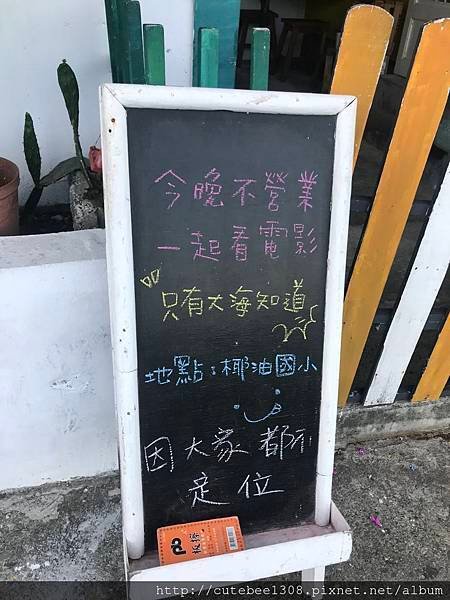 今晚不營業
一起看電影
只有大海知道
地點：椰油國小
因大家都不
定位
http://cutebee1308.pixnet.net/album